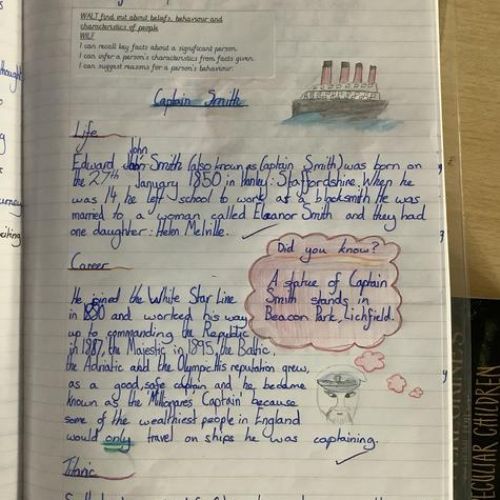 WALT find out about beliefs, behaviour and
characteristics of people
WILF
I can recall key facts about a significant person.
I can infer a person's characteristics from facts given.
I can suggest reasons for a person's behaviour.
Captain Smith
Life
John
Edward Smith (also known as Captain Smith) was born on
the 27th January 1850 in Hanley: Staffordshire. When he
was 14, he left school to work as a blacksmith. He was
married to a woman called Eleanor Smith and they had
one daughter: Helen Melville.
Did you know?
A statue of Captain
Smith stands in
Beacon Park, Lichfield.
Career
He joined the White Star Line
in and worked his way
up to commanding the Republic
in 1887, the Majestic in 1895, the Baltic,
the Adriatic and the Olympic. His reputation grew,
as a good, safe captain and he became
known as the 'Millionares Captain' because
some of the wealthiest people in England
would only travel on ships he was captaining.
Titanic
CULIAR CHILDREN